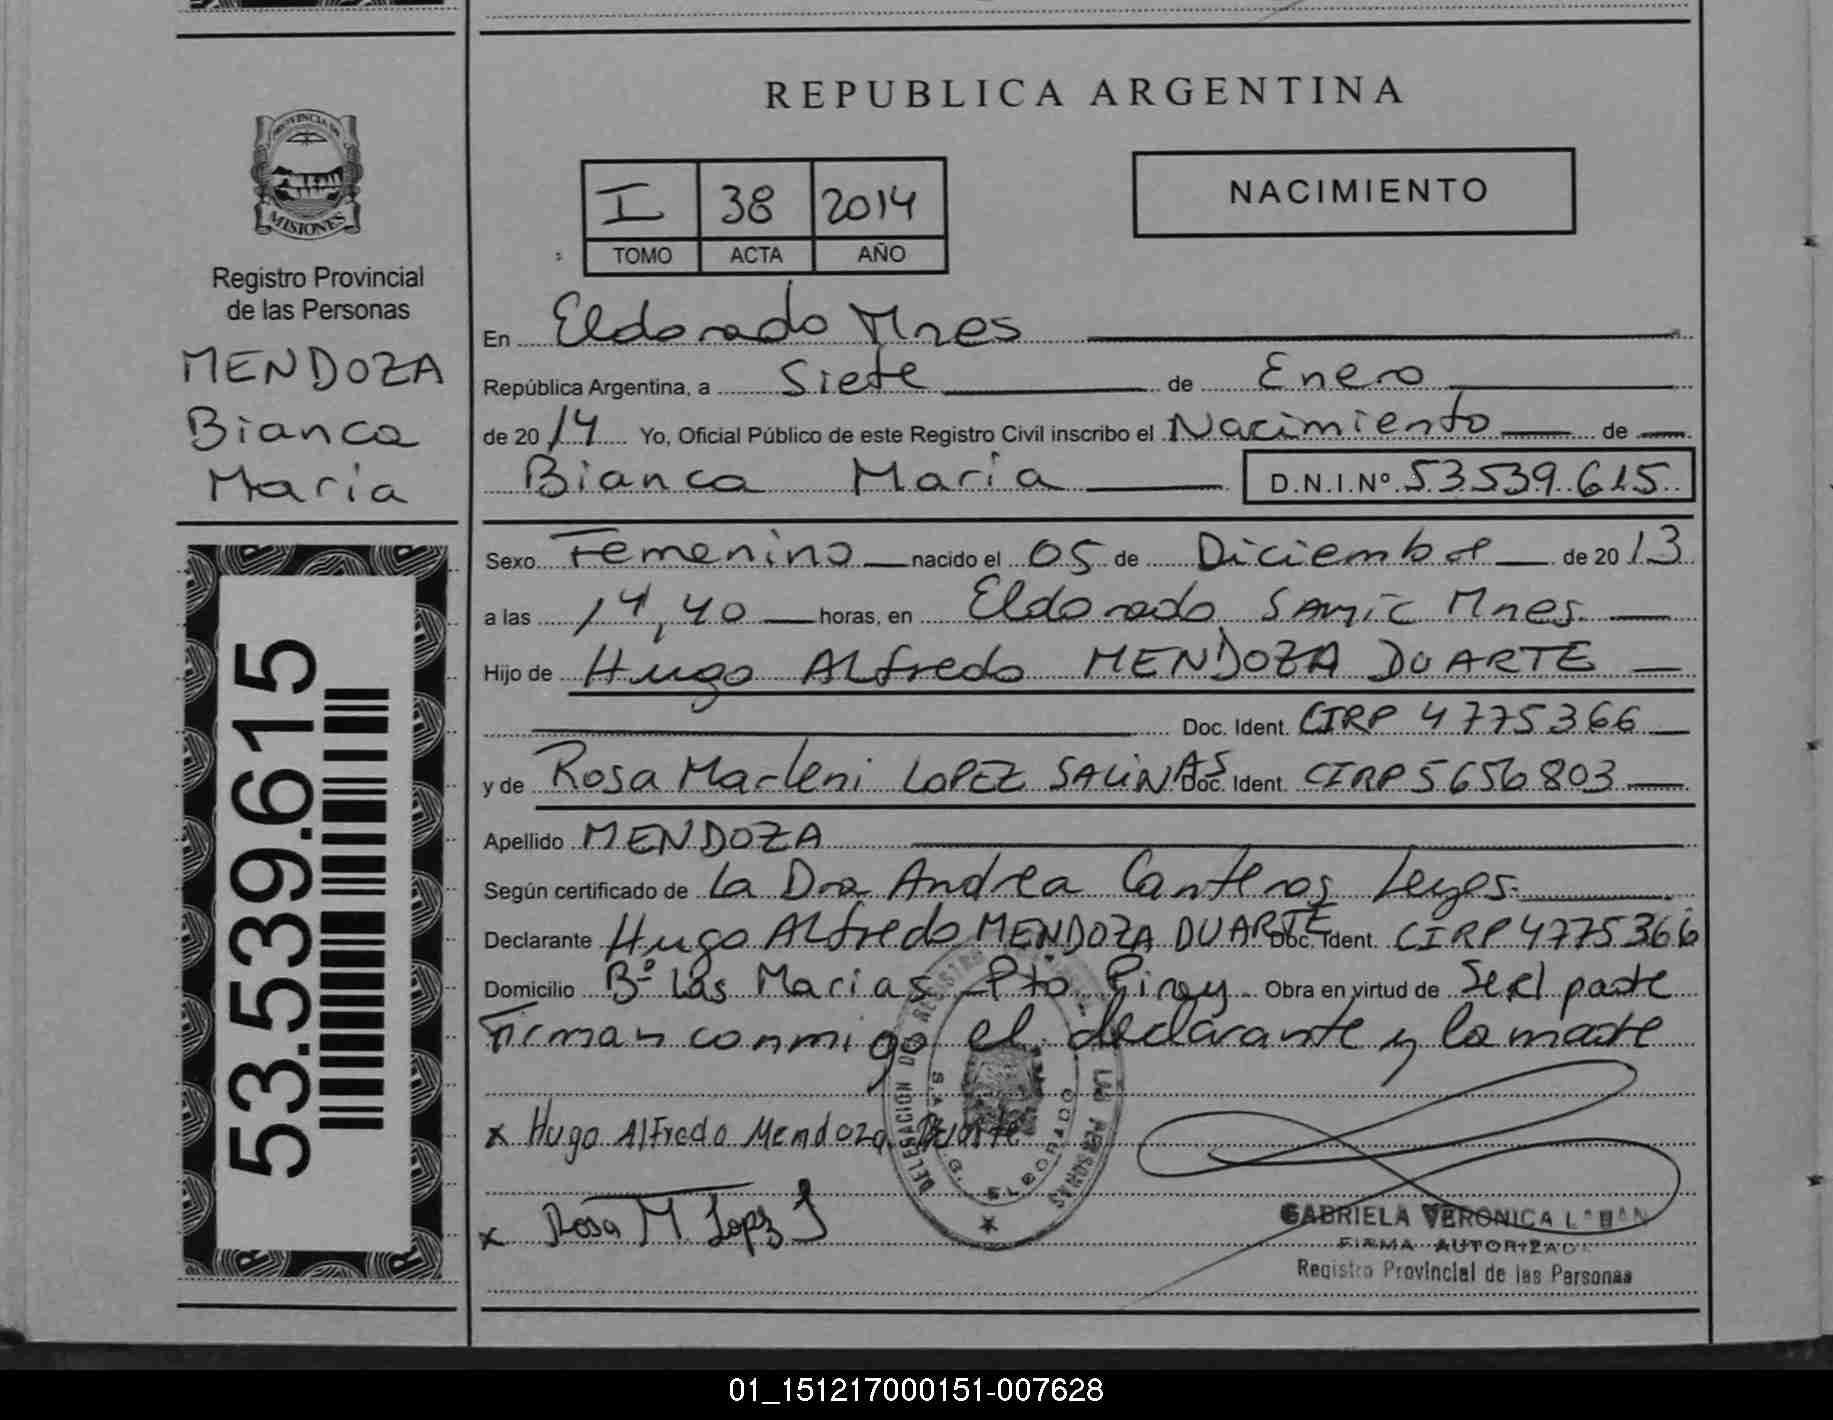 REPUBLICA ARGENTINA
PROVINCIA DE
MISIONES
Registro Provincial
de las Personas
MENDOZA
Bianca
Maria
53.539.615
I 38 2014
TOMO ACTA AÑO
NACIMIENTO
En Eldorado Mnes
República Argentina, a Siete de Enero
de 20 14 Yo, Oficial Público de este Registro Civil inscribo el Nacimiento de
Bianca Maria D.N.I.Nº 53539.615
Sexo Femenino nacido el 05 de Diciembre de 20 13
a las 14,40 horas, en Eldorado SAMIC Mnes.
Hijo de Hugo Alfredo MENDOZA DUARTE
Doc. Ident. CIRP 4775366
y de Rosa Marleni LOPEZ SALINAS Doc. Ident. CIRP 5656803
Apellido MENDOZA
Según certificado de La Dra Andrea Canteros Leyes.
Declarante Hugo Alfredo MENDOZA DUARTE Doc. Ident. CIRP 4775366
Domicilio Bº Las Marias Pto Piray Obra en virtud de Ser el padre
Firman conmigo el declarante y la madre
x Hugo Alfredo Mendoza Duarte
x Rosa M. Lopez S
DELEGACION DEL REGISTRO LAS PERSONAS
ELDORADO
GABRIELA VERONICA
FIRMA AUTORIZADA
Registro Provincial de las Personas
01_151217000151-007628